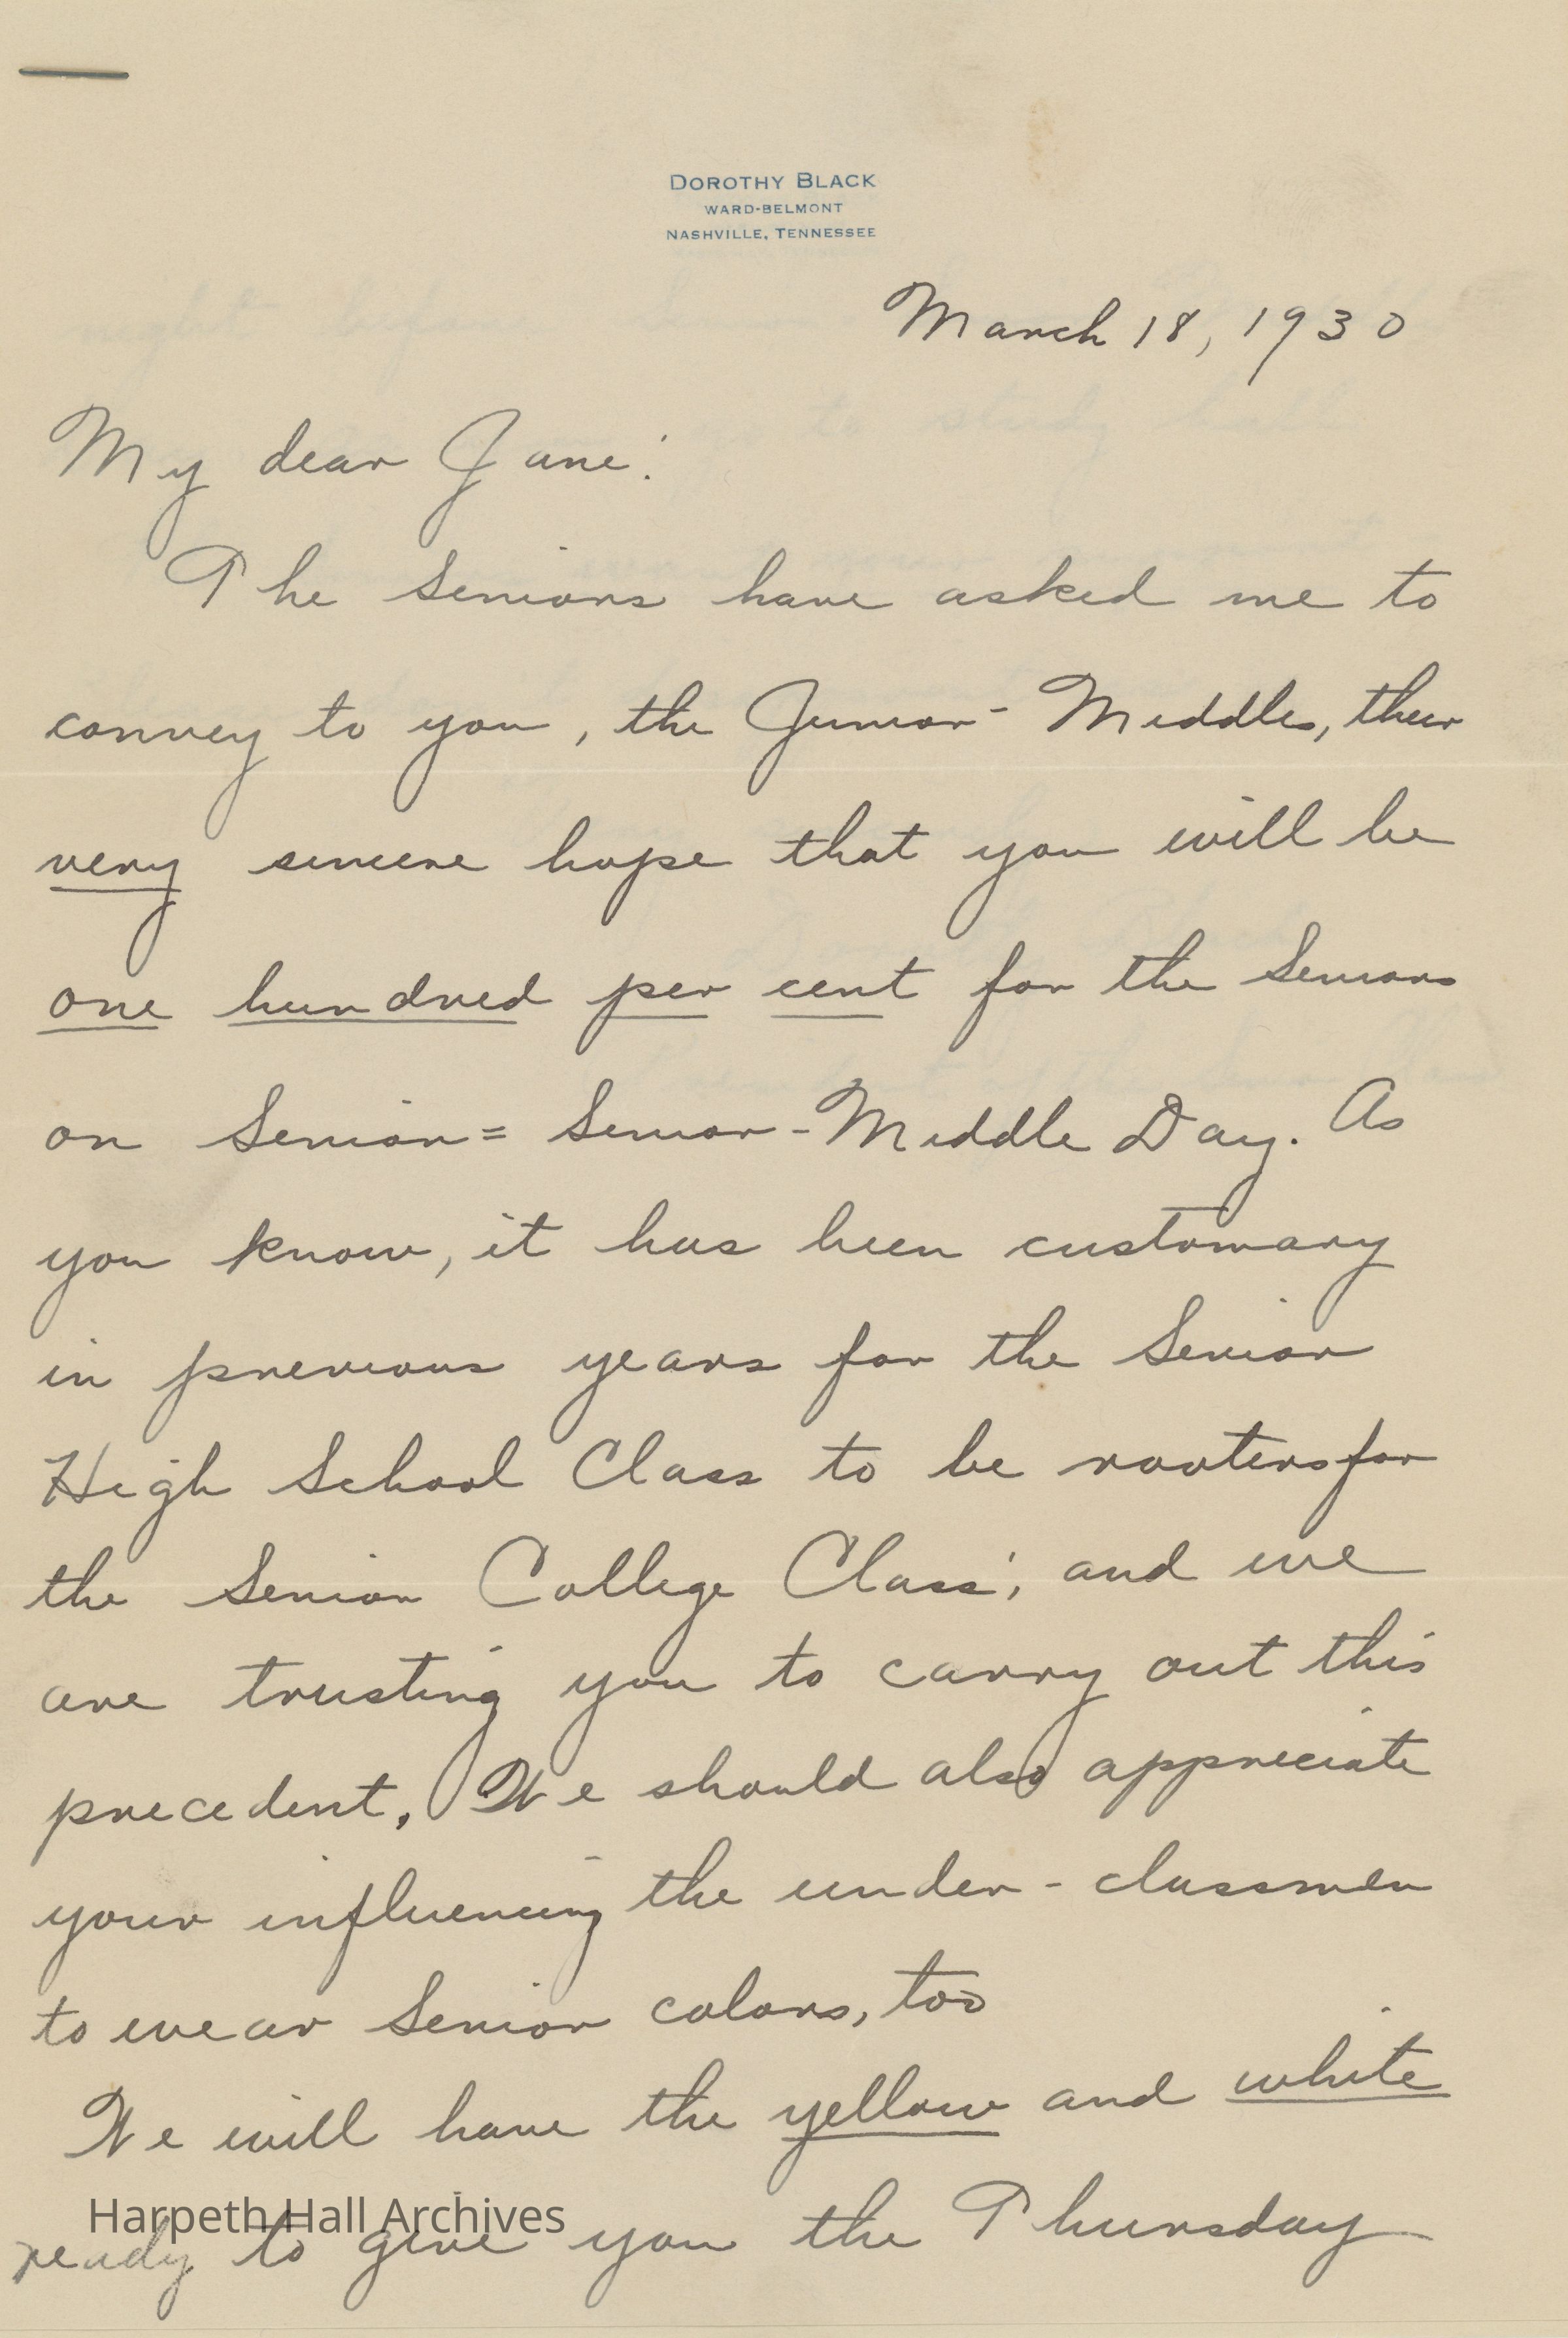 DOROTHY BLACK
WARD-BELMONT
NASHVILLE, TENNESSEE
March 18, 1930
My dear Jane:
The Seniors have asked me to
convey to you, the Junior-Middles, their
very sincere hope that you will be
one hundred per cent for the Seniors
on Senior = Senior-Middle Day. As
you know, it has been customary
in previous years for the Senior
High School Class to be rooters for
the Senior College Class; and we
are trusting you to carry out this
precedent. We should also appreciate
your influencing the under-classmen
to wear Senior colors, too
We will have the yellow and white
Harpeth Hall Archives
ready to give you the Thursday